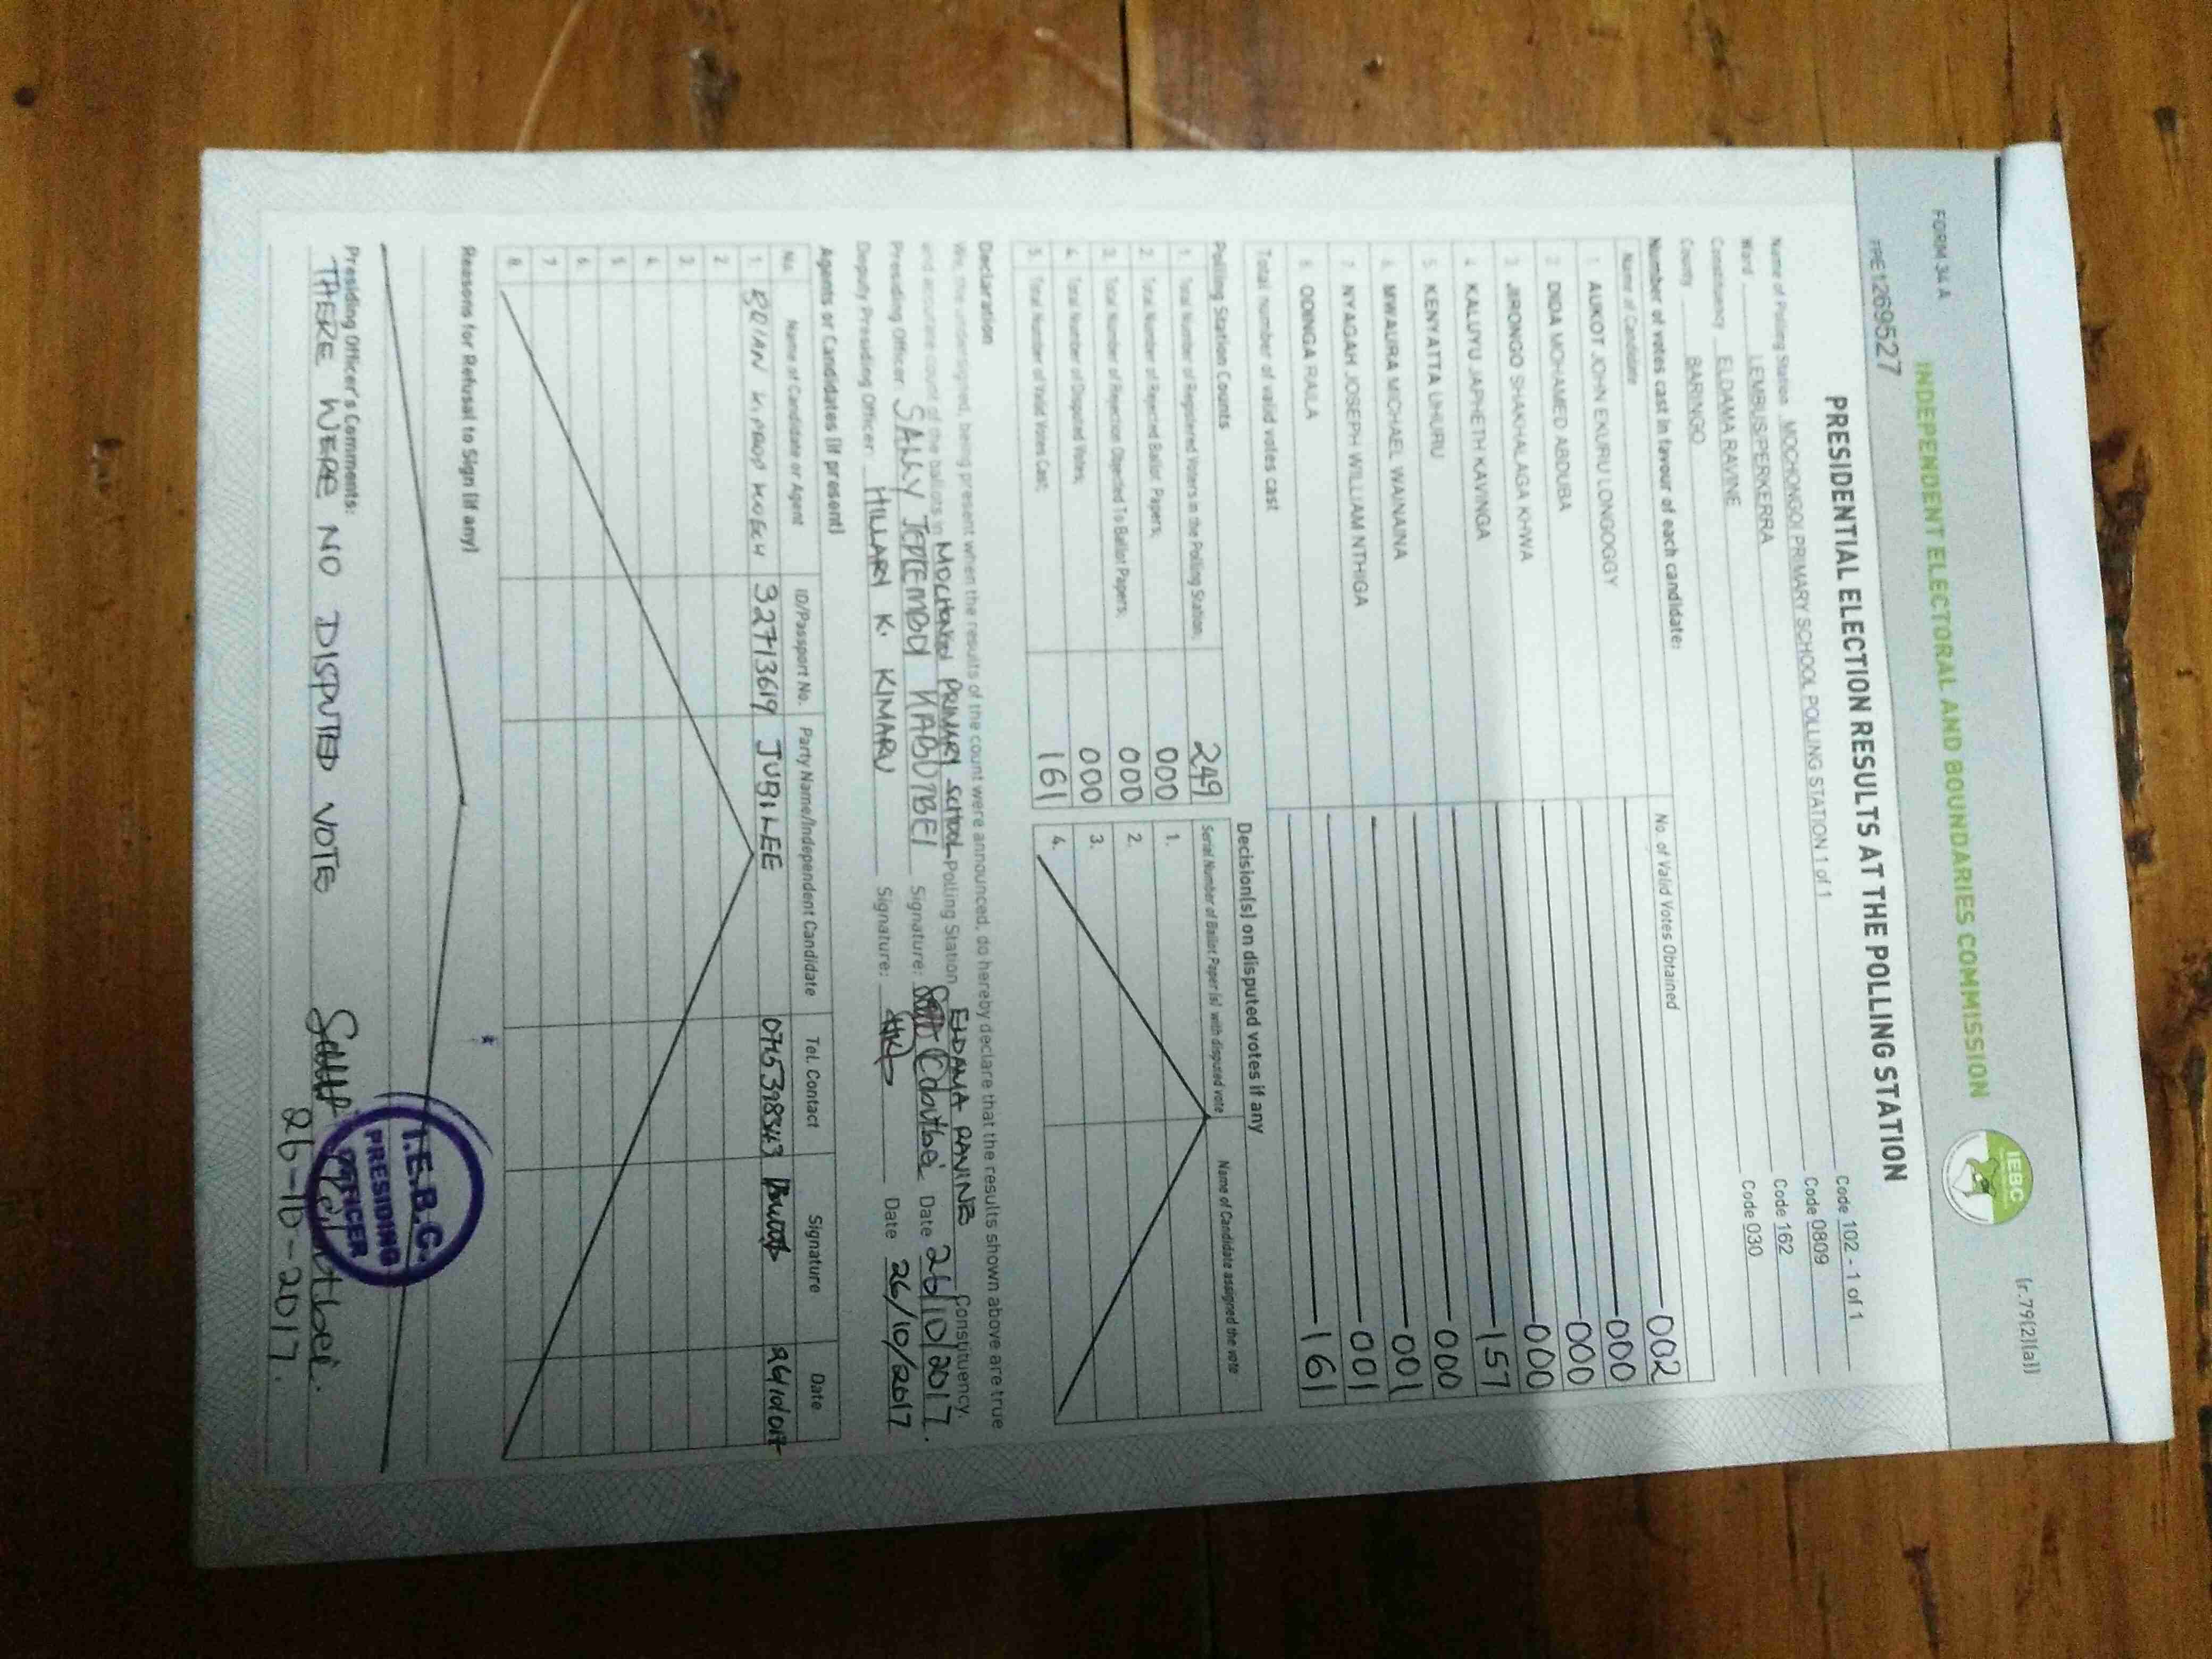 FORM 34 A
(r.79(2)(a))
INDEPENDENT ELECTORAL AND BOUNDARIES COMMISSION
IEBC
PRE1269527
PRESIDENTIAL ELECTION RESULTS AT THE POLLING STATION
Name of Polling Station MOCHONGOI PRIMARY SCHOOL POLLING STATION 1 of 1 Code 102 - 1 of 1
Ward LEMBUS/PERKERRA Code 0809
Constituency ELDAMA RAVINE Code 162
County BARINGO Code 030
Number of votes cast in favour of each candidate:
Name of Candidate No. of Valid Votes Obtained
1 AUKOT JOHN EKURU LONGOGGY 002
2 DIDA MOHAMED ABDUBA 000
3 JIRONGO SHAKHALAGA KHWA 000
4 KALUYU JAPHETH KAVINGA 000
5 KENYATTA UHURU 157
6 MWAURA MICHAEL WAINAINA 000
7 NYAGAH JOSEPH WILLIAM NTHIGA 001
8 ODINGA RAILA 001
Total number of valid votes cast 161
Polling Station Counts
1. Total Number of Registered Voters in the Polling Station; 249
2. Total Number of Rejected Ballot Papers; 000
3. Total Number of Rejection Objected To Ballot Papers; 000
4. Total Number of Disputed Votes; 000
5. Total Number of Valid Votes Cast; 161
Decision(s) on disputed votes if any
Serial Number of Ballot Paper (s) with disputed vote Name of Candidate assigned the vote
1.
2.
3.
4.
Declaration
We, the undersigned, being present when the results of the count were announced, do hereby declare that the results shown above are true
and accurate count of the ballots in MOCHONGOI PRIMARY SCHOOL Polling Station ELDAMA RAVINE Constituency.
Presiding Officer SALLY JEPTEMBOI KABUTBEI Signature: Date 26/10/2017.
Deputy Presiding Officer: HILLARY K. KIMARU Signature: Date 26/10/2017
Agents or Candidates (if present)
No. Name of Candidate or Agent ID/Passport No. Party Name/Independent Candidate Tel. Contact Signature Date
1. BRIAN KIPROP 32713619 JUBILEE 0715398843
2.
3.
4.
5.
6.
7.
8.
Reasons for Refusal to Sign (if any)
Presiding Officer's Comments:
THERE WERE NO DISPUTED VOTE
26-10-2017.
I.E.B.C.
PRESIDING
OFFICER